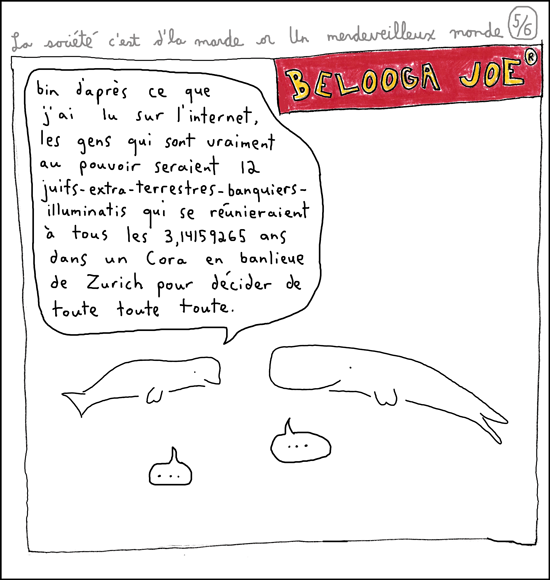 La société c'est d'la marde or Un merdeveilleux monde 5/6
BELOOGA JOE®
bin d'après ce que
j'ai lu sur l'internet,
les gens qui sont vraiment
au pouvoir seraient 12
juifs-extra-terrestres-banquiers-
illuminatis qui se réunieraient
à tous les 3,14159265 ans
dans un Cora en banlieue
de Zurich pour décider de
toute toute toute.
...
...